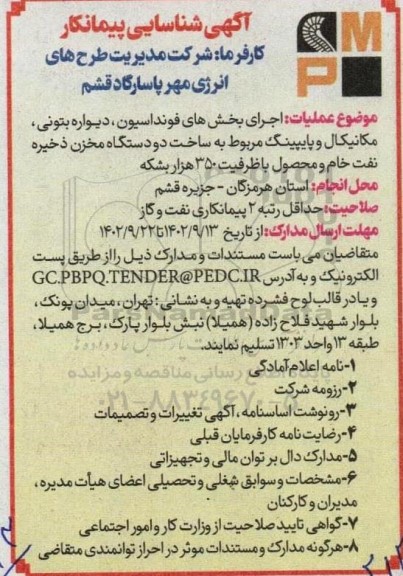 آگهی شناسایی پیمانکار
کارفرما: شرکت مدیریت طرح های
انرژی مهر پاسارگاد قشم
MP
موضوع عملیات: اجرای بخش های فونداسیون ، دیواره بتونی ،
مکانیکال و پایپینگ مربوط به ساخت دو دستگاه مخزن ذخیره
نفت خام و محصول با ظرفیت ۳۵۰ هزار بشکه
محل انجام: استان هرمزگان - جزیره قشم
صلاحیت: حداقل رتبه ۲ پیمانکاری نفت و گاز
مهلت ارسال مدارک: از تاریخ ۱۴۰۲/۹/۱۳ تا ۱۴۰۲/۹/۲۲
متقاضیان می باست مستندات و مدارک ذیل را از طریق پست
الکترونیک و به آدرس GC.PBPQ.TENDER@PEDC.IR
و یا در قالب لوح فشرده تهیه و به نشانی : تهران ، میدان پونک ،
بلوار شهید فلاح زاده (همیلا) نبش بلوار پارک ، برج همیلا ،
طبقه ۱۳ واحد ۱۳۰۳ تسلیم نمایند.
۱-نامه اعلام آمادگی
۲-رزومه شرکت
۳-رونوشت اساسنامه ، آگهی تغییرات و تصمیمات
۴-رضایت نامه کارفرمایان قبلی
۵-مدارک دال بر توان مالی و تجهیزاتی
۶-مشخصات و سوابق شغلی و تحصیلی اعضای هیأت مدیره ،
مدیران و کارکنان
۷-گواهی تایید صلاحیت از وزارت کار و امور اجتماعی
۸-هرگونه مدارک و مستندات موثر در احراز توانمندی متقاضی
۰۲۱-۸۸۳۴۹۶۷۰-۵